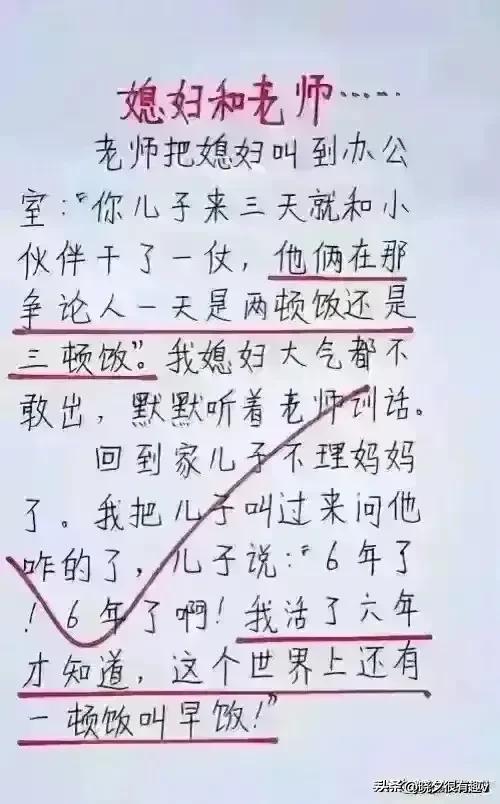 媳妇和老师……
老师把媳妇叫到办公
室:“你儿子来三天就和小
伙伴干了一仗,他俩在那
争论人一天是两顿饭还是
三顿饭”。我媳妇大气都不
敢出,默默听着老师训话。
回到家儿子不理妈妈
了。我把儿子叫过来问他
咋的了,儿子说:“6年了
!6年了啊!我活了六年
才知道,这个世界上还有
一顿饭叫早饭!”
头条@晓夕很有趣v